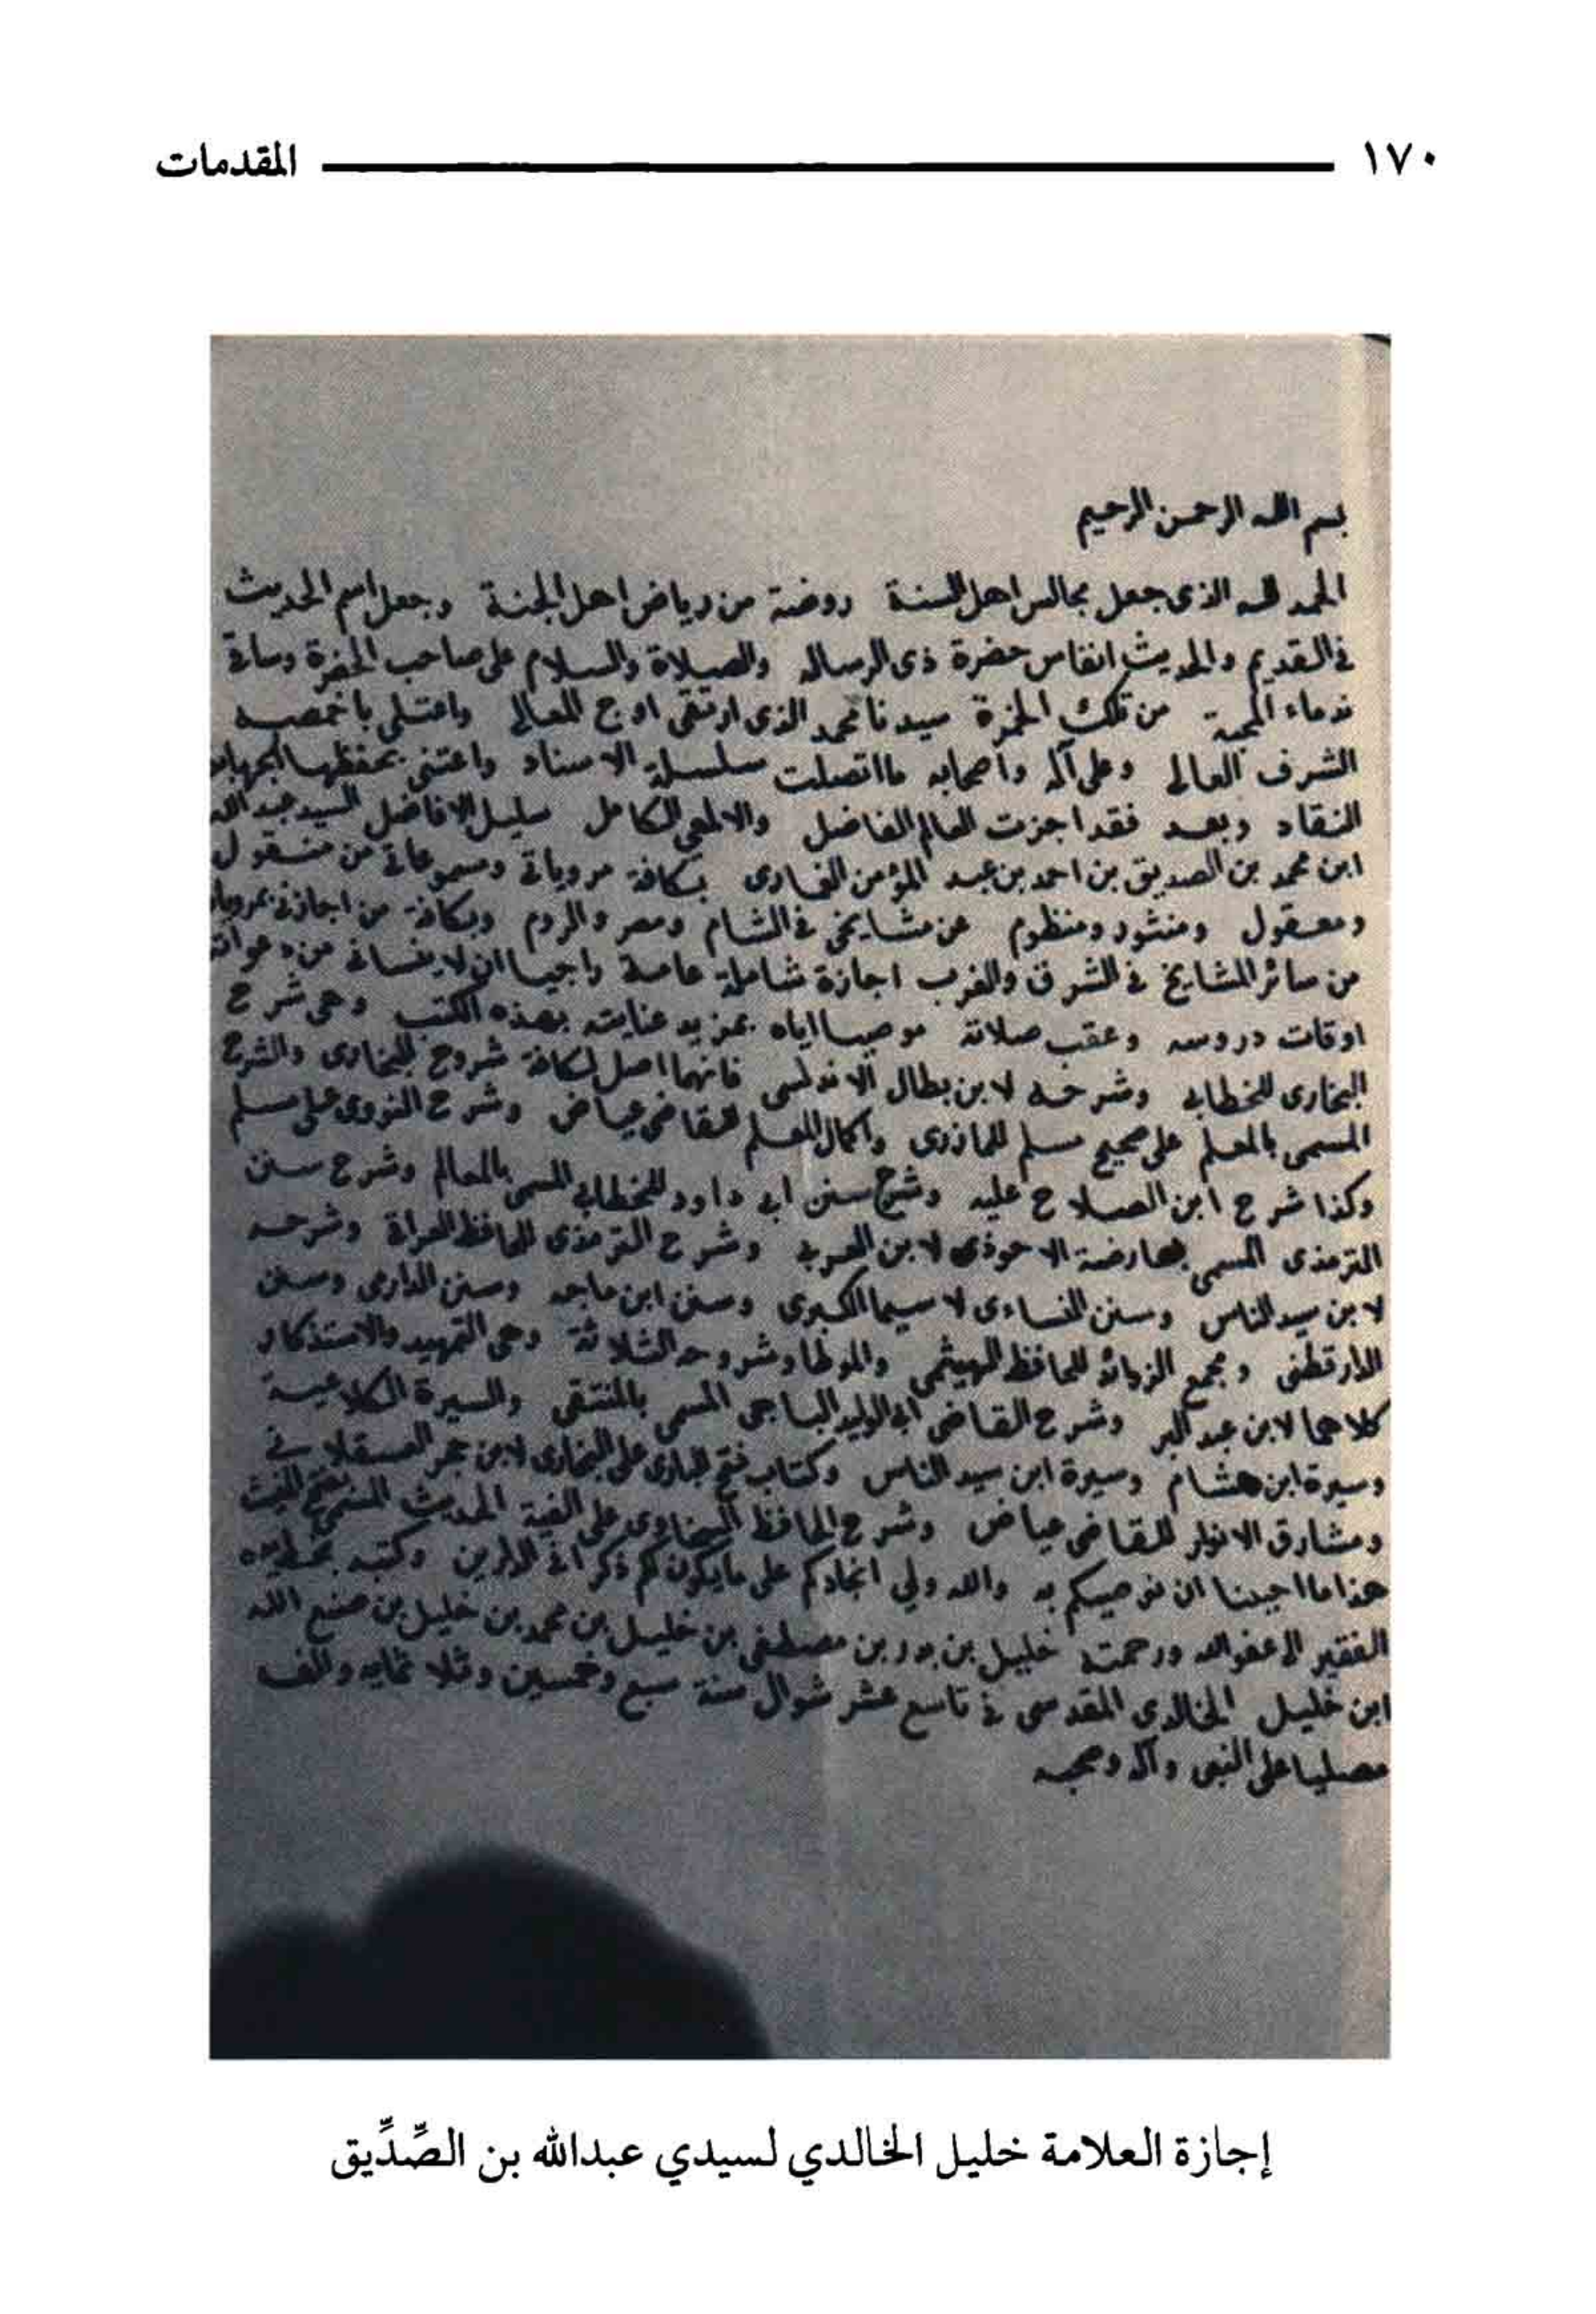 ١٧٠ المقدمات
بسم الله الرحمن الرحيم
الحمد لله الذى جعل مجالس اهل السنة روضة من رياض اهل الجنة وجعل اهم الحديث
فى القديم والحديث انفاس حضرة ذى الرساله والصلاة والسلام على صاحب الحضرة وساقى
ندماء المحبة من تلك الخمرة سيدنا محمد الذى ارتقى اوج المعالى واعتلى باخمصيه
الشرف العالى وعلى آله واصحابه ما اتصلت سلسلة الاسناد واعتنى بحفظها الجهابذ
النقاد وبعد فقد اجزت العالم الفاضل والالمعى الكامل سليل الافاضل السيد عبد الله
ابن محمد بن الصديق بن احمد بن عبد المؤمن الغمارى بكافة مروياتى ومسموعاتى من منقول
ومعقول ومنثور ومنظوم عن مشايخى فى الشام ومصر والروم وبكافة من اجازنى بمروياته
من سائر المشايخ فى الشرق والغرب اجازة شاملة عامة راجيا ان لا ينسانى من دعواته
اوقات دروسه وعقب صلاته موصيا اياه بمزيد عنايته بهذه الكتب وهى شرح
البخارى للخطابى وشرحه لابن بطال الاندلسى فانهما اصل لكافة شروح البخارى والشرح
المسمى بالمعلم على صحيح مسلم للمازرى واكمال المعلم للقاضى عياض وشرح النووى على مسلم
وكذا شرح ابن الصلاح عليه وشرح سنن ابى داود للخطابى المسمى بالمعالم وشرح سنن
الترمذى المسمى بعارضة الاحوذى لابن العربى وشرح الترمذى للحافظ العراقى وشرحه
لابن سيد الناس وسنن النساءى لا سيما الكبرى وسنن ابن ماجه وسنن الدارمى وسنن
الدارقطنى ومجمع الزوائد للحافظ الهيثمى والموطا وشروحه الثلاثة وهى التمهيد والاستذكار
كلاهما لابن عبد البر وشرح القاضى ابى الوليد الباجى المسمى بالمنتقى والسيرة الكلاعية
وسيرة ابن هشام وسيرة ابن سيد الناس وكتاب فتح البارى على البخارى لابن حجر العسقلانى
ومشارق الانوار للقاضى عياض وشرح الحافظ السخاوى على الفية الحديث المسمى بفتح المغيث
هذا ما احببنا ان نوصيكم به والله ولي انجادكم على ما يكون لكم ذكرا فى الدارين وكتبه بخط يده
الفقير الى عفو الله ورحمته خليل بن بدر بن مصطفى بن خليل بن محمد بن خليل بن صنع الله
ابن خليل الخالدي المقدسى فى تاسع عشر شوال سنة سبع وخمسين وثلاثمايه والف
مصليا على النبى وآله وصحبه
إجازة العلامة خليل الخالدي لسيدي عبدالله بن الصِّدِّيق